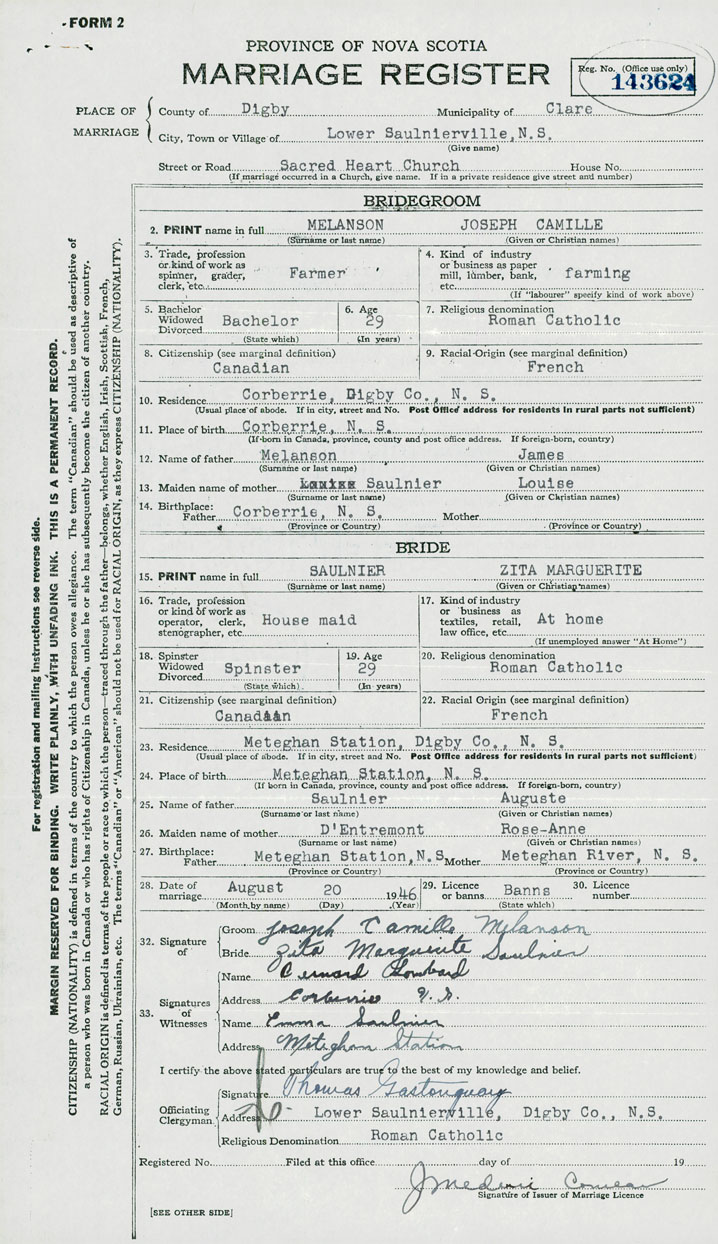 FORM 2
PROVINCE OF NOVA SCOTIA
MARRIAGE REGISTER
Reg. No. (Office use only)
143624
PLACE OF MARRIAGE
County of Digby Municipality of Clare
City, Town or Village of Lower Saulnierville, N.S.
(Give name)
Street or Road Sacred Heart Church House No.
(If marriage occurred in a Church, give name. If in a private residence give street and number)
BRIDEGROOM
2. PRINT name in full MELANSON JOSEPH CAMILLE
(Surname or last name) (Given or Christian names)
3. Trade, profession or kind of work as spinner, grader, clerk, etc. Farmer
4. Kind of industry or business as paper mill, lumber, bank, etc. farming
(If "labourer" specify kind of work above)
5. Bachelor Widowed Divorced Bachelor
(State which)
6. Age 29
(In years)
7. Religious denomination
Roman Catholic
8. Citizenship (see marginal definition)
Canadian
9. Racial Origin (see marginal definition)
French
10. Residence Corberrie, Digby Co., N. S.
(Usual place of abode. If in city, street and No. Post Office address for residents in rural parts not sufficient)
11. Place of birth Corberrie, N. S.
(If born in Canada, province, county and post office address. If foreign-born, country)
12. Name of father Melanson James
(Surname or last name) (Given or Christian names)
13. Maiden name of mother Saulnier Louise
(Surname or last name) (Given or Christian names)
14. Birthplace: Father Corberrie, N. S. Mother
(Province or Country) (Province or Country)
BRIDE
15. PRINT name in full SAULNIER ZITA MARGUERITE
(Surname or last name) (Given or Christian names)
16. Trade, profession or kind of work as operator, clerk, stenographer, etc. House maid
17. Kind of industry or business as textiles, retail, law office, etc. At home
(If unemployed answer "At Home")
18. Spinster Widowed Divorced Spinster
(State which)
19. Age 29
(In years)
20. Religious denomination
Roman Catholic
21. Citizenship (see marginal definition)
Canadian
22. Racial Origin (see marginal definition)
French
23. Residence Meteghan Station, Digby Co., N. S.
(Usual place of abode. If in city, street and No. Post Office address for residents in rural parts not sufficient)
24. Place of birth Meteghan Station, N. S.
(If born in Canada, province, county and post office address. If foreign-born, country)
25. Name of father Saulnier Auguste
(Surname or last name) (Given or Christian names)
26. Maiden name of mother D'Entremont Rose-Anne
(Surname or last name) (Given or Christian names)
27. Birthplace: Father Meteghan Station, N.S. Mother Meteghan River, N. S.
(Province or Country) (Province or Country)
28. Date of marriage August 20 1946
(Month by name) (Day) (Year)
29. Licence or banns Banns
(State which)
30. Licence number
32. Signature of
Groom Joseph Camille Melanson
Bride Zita Marguerite Saulnier
33. Signatures of Witnesses
Name Bernard Lombard
Address Corberrie N.S.
Name Emma Saulnier
Address Meteghan Station
I certify the above stated particulars are true to the best of my knowledge and belief.
Officiating Clergyman
Signature Thomas Gastonguay
Address Lower Saulnierville, Digby Co., N.S.
Religious Denomination Roman Catholic
Registered No. Filed at this office day of 19
J Medenic Comeau
Signature of Issuer of Marriage Licence
[SEE OTHER SIDE]
For registration and mailing instructions see reverse side.
MARGIN RESERVED FOR BINDING. WRITE PLAINLY, WITH UNFADING INK. THIS IS A PERMANENT RECORD.
CITIZENSHIP (NATIONALITY) is defined in terms of the country to which the person owes allegiance. The term "Canadian" should be used as descriptive of
a person who was born in Canada or who has rights of Citizenship in Canada, unless he or she has subsequently become the citizen of another country.
RACIAL ORIGIN is defined in terms of the people or race to which the person—traced through the father—belongs, whether English, Irish, Scottish, French,
German, Russian, Ukrainian, etc. The terms "Canadian" or "American" should not be used for RACIAL ORIGIN, as they express CITIZENSHIP (NATIONALITY).